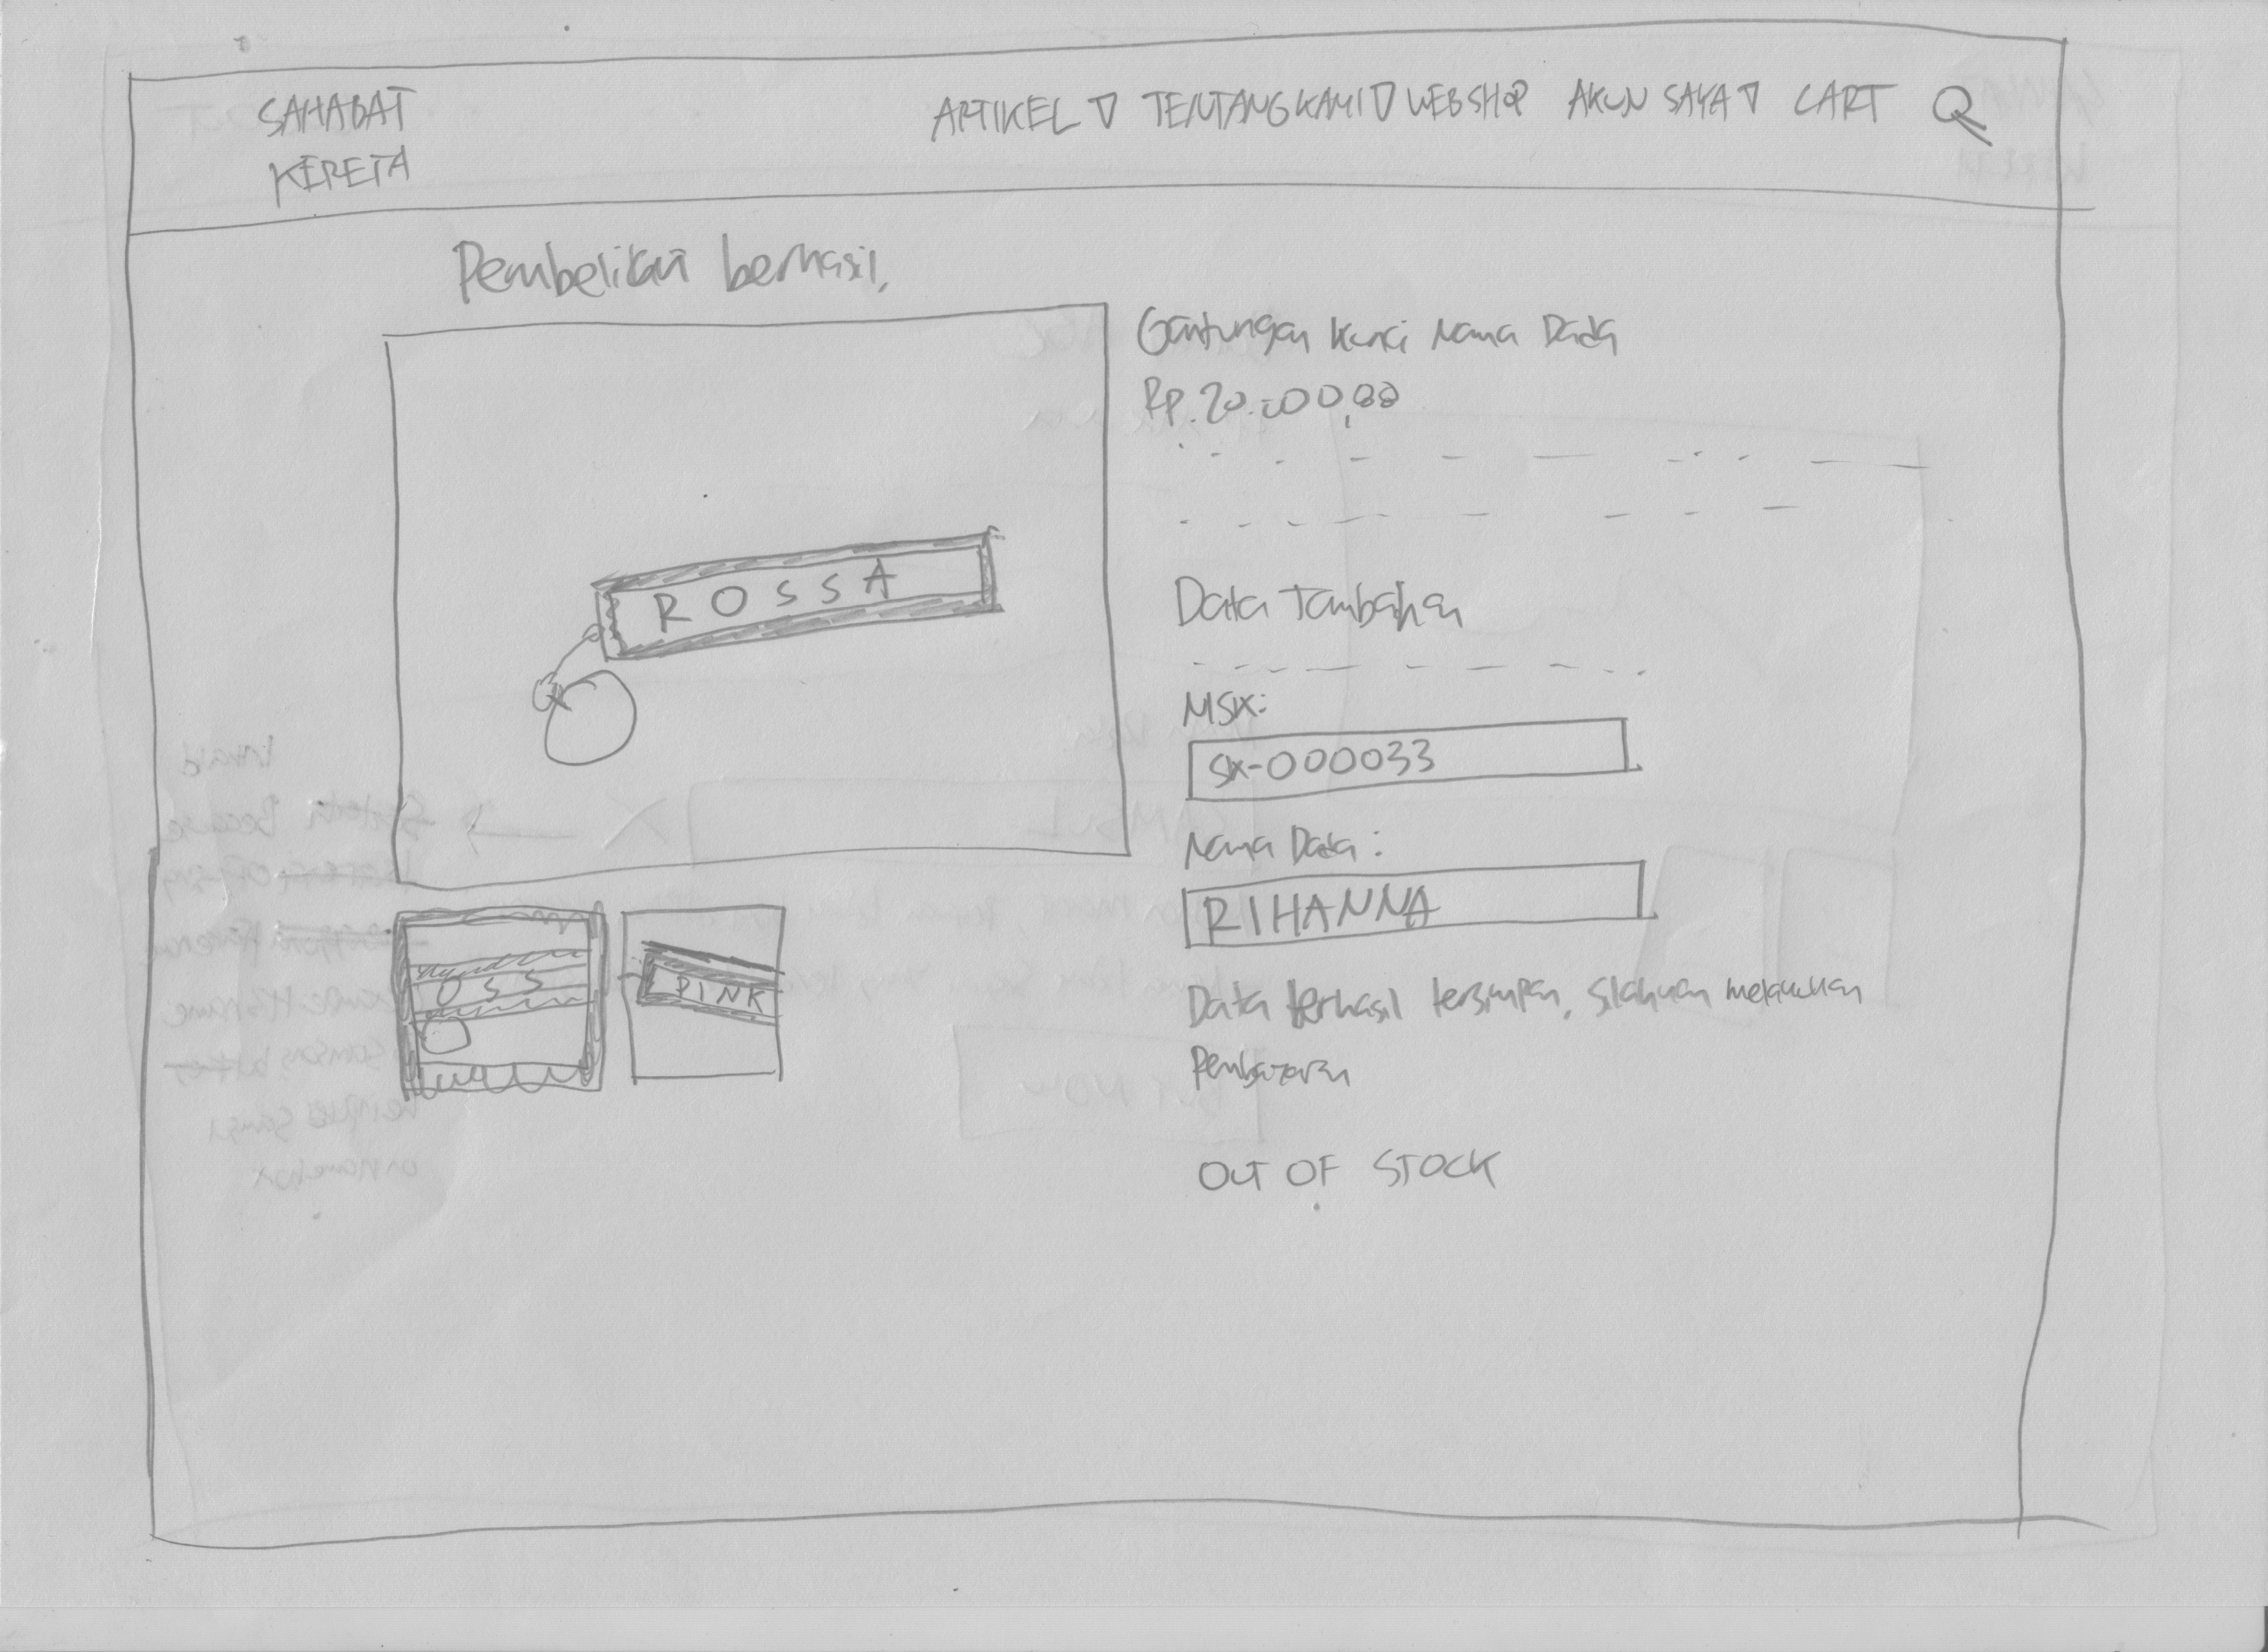 SAHABAT
KERETA
ARTIKEL ▽ TENTANG KAMI ▽ WEBSHOP AKUN SAYA ▽ CART
Pembelian berhasil.
Gantungan Kunci Nama Dada
Rp. 20.000,00
ROSSA
Data Tambahan
MSK:
SK-000033
Nama Dada:
RIHANNA
OSS
PINK
Data berhasil tersimpan, silahkan melakukan
Pembayaran
OUT OF STOCK